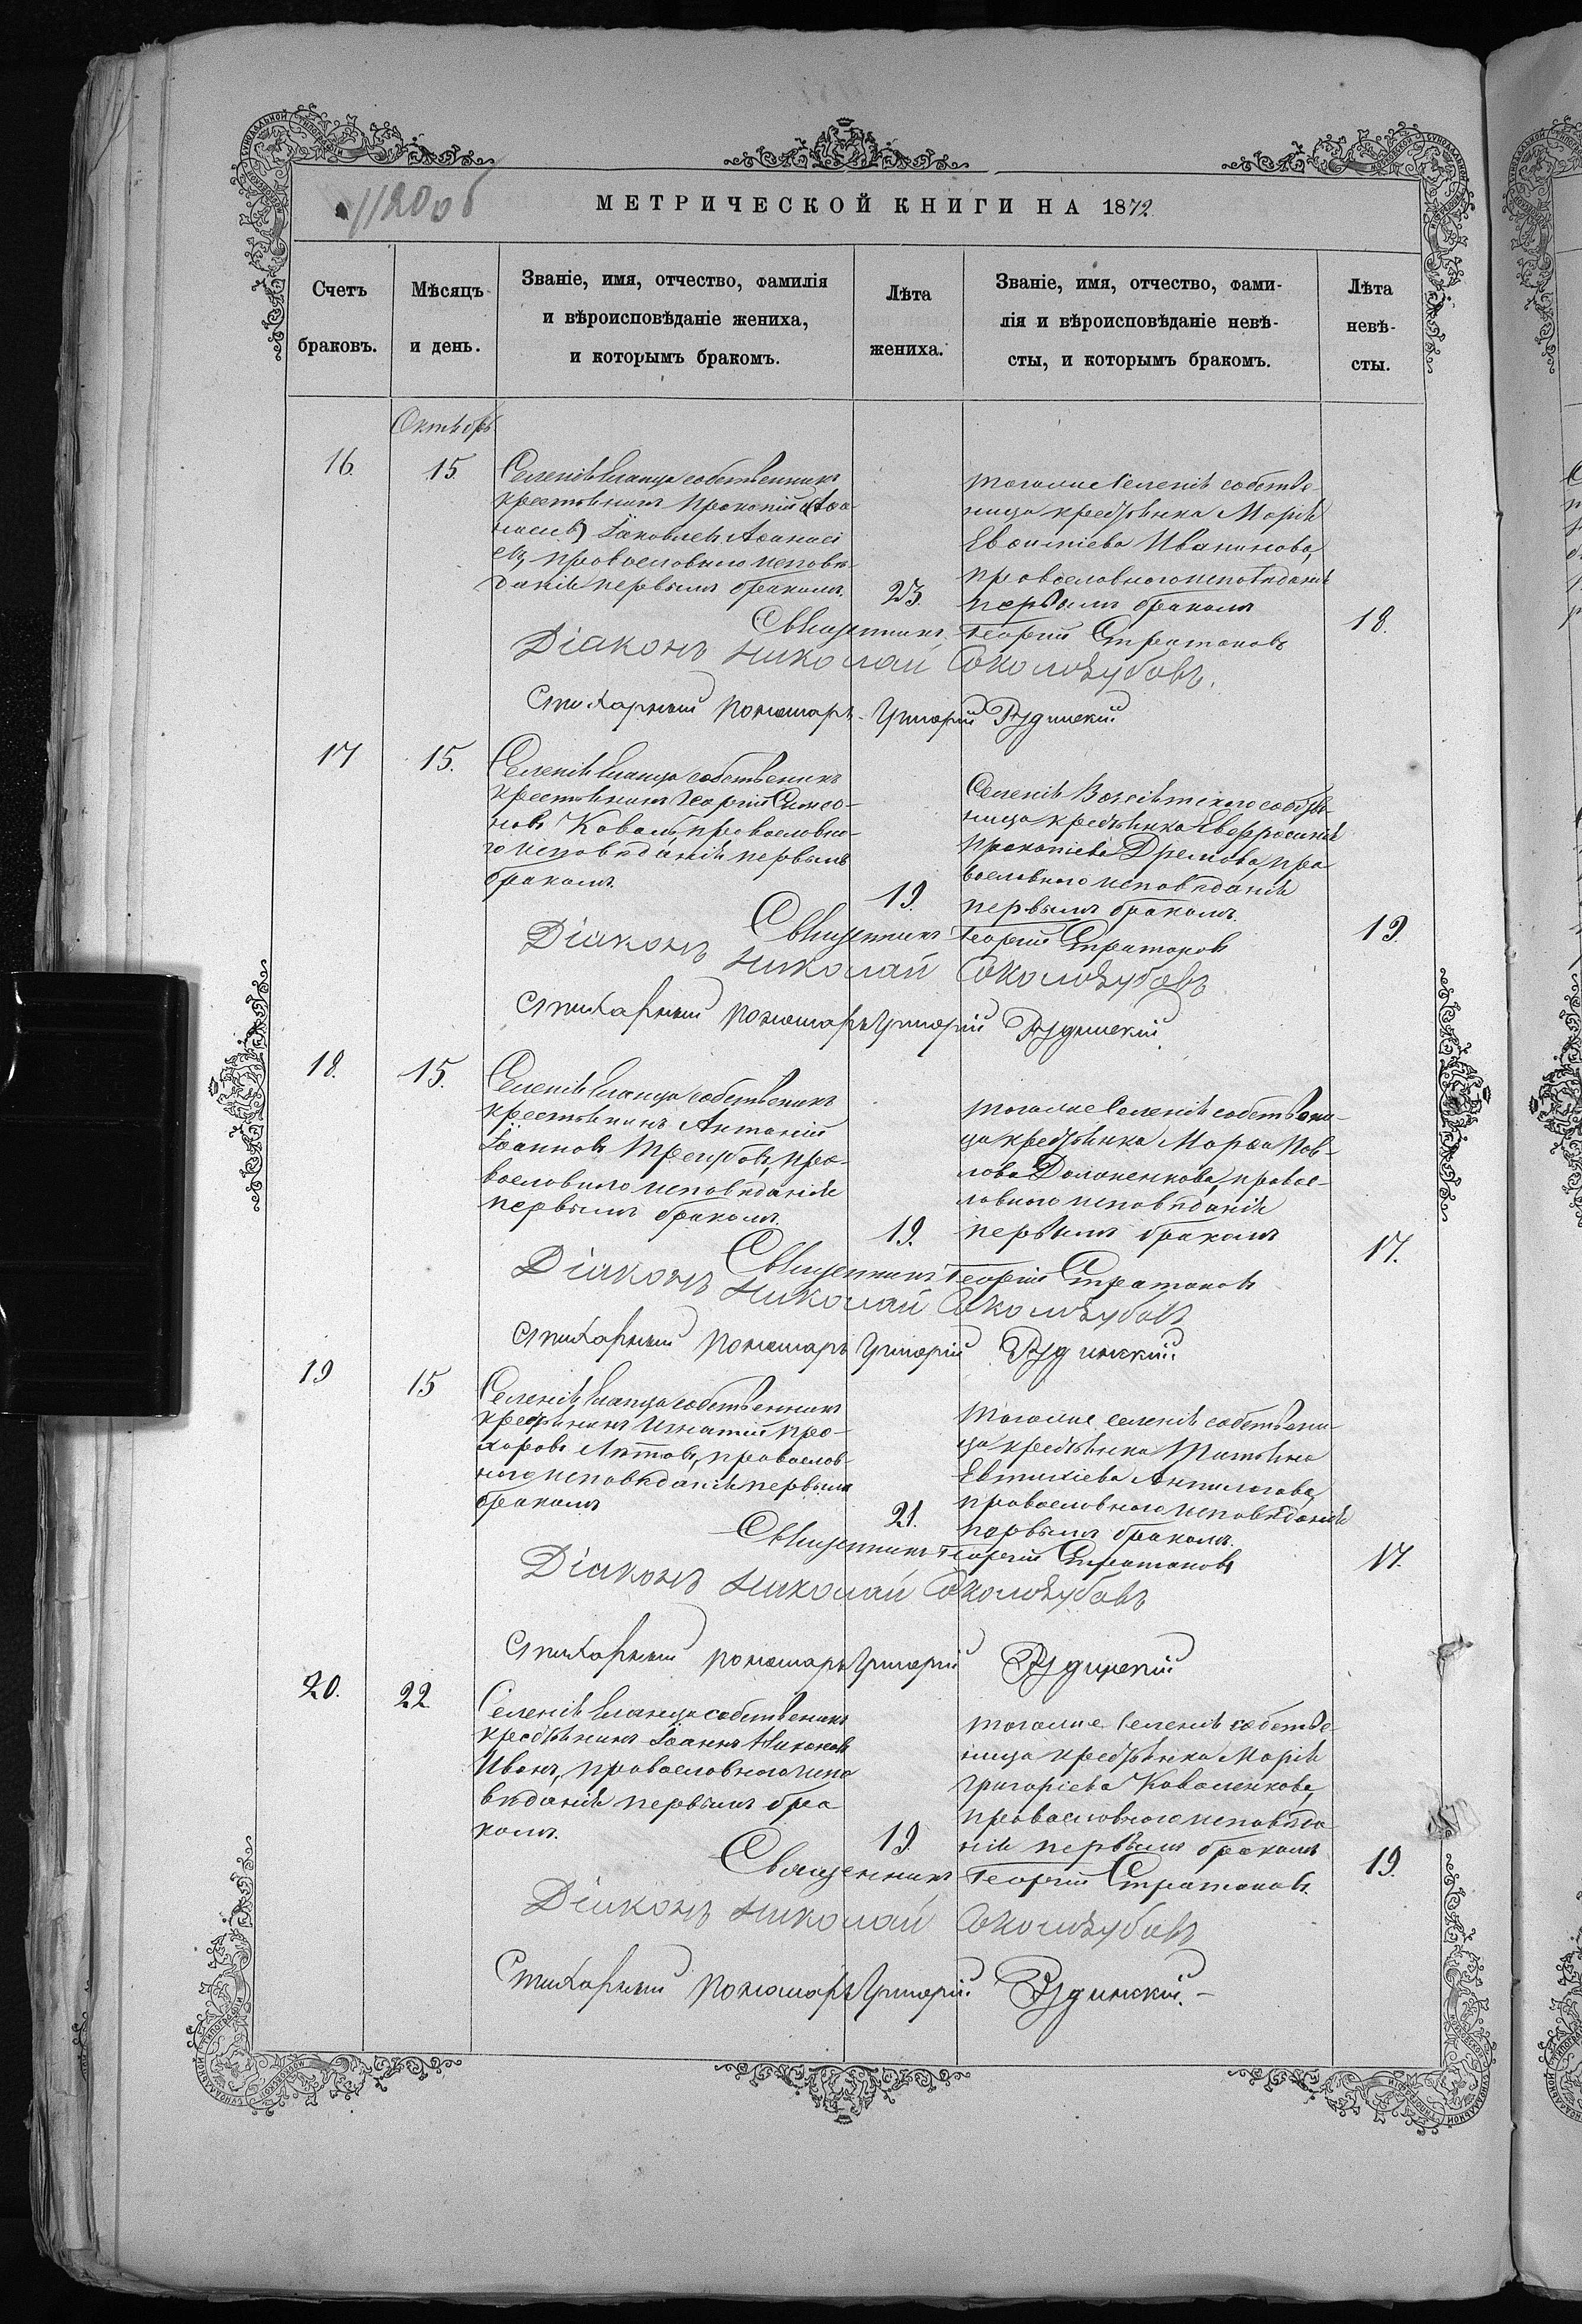 1120 об
МЕТРИЧЕСКОЙ КНИГИ НА 1872
Счетъ браковъ.
Мѣсяцъ и день.
Званіе, имя, отчество, фамилія
и вѣроисповѣданіе жениха,
и которымъ бракомъ.
Лѣта
жениха.
Званіе, имя, отчество, фами-
лія и вѣроисповѣданіе невѣ-
сты, и которымъ бракомъ.
Лѣта
невѣ-
сты.
Октябрь
16.
15
Селенія собственникъ
крестьянинъ Прокопій (Аѳа
насіевъ) Іаковлевъ Аѳанасі
евъ, православнаго исповѣ
данія первымъ бракомъ.
23.
тогоже селенія собстве
ница крестьянка Марія
Иванинова,
православнаго исповѣданія
первымъ бракомъ
18.
Священникъ Георгій Стратоновъ
Діаконъ Николай Соколозубовъ.
Стихарный пономарь Григорій Рудинскій
17
15.
Селенія собственикъ
крестьянинъ Георгій Симео-
новъ Коваль, православна-
го исповѣданія первымъ
бракомъ.
19.
Селенія собстве
ница крестьянка Евфросинія
Прокопіева Дремова, пра
вославнаго исповѣданія
первымъ бракомъ.
19.
Священникъ Георгій Стратоновъ
Діаконъ Николай Соколозубовъ
Стихарный пономарь Григорій Рудинскій.
18.
15.
Селенія собственикъ
крестьянинъ Антоній
Іоанновъ Трегубовъ, пра-
вославнаго исповѣданія
первымъ бракомъ.
19.
тогоже селенія собствени-
ца крестьянка Марѳа Пав-
лова Долженкова, правос-
лавнаго исповѣданія
первымъ бракомъ
17.
Священникъ Георгій Стратоновъ
Діаконъ Николай Соколозубовъ
Стихарный пономарь Григорій Рудинскій.
19
15
Селенія собственникъ
крестьянинъ Игнатій Про-
хоровъ православ-
наго исповѣданія первымъ
бракомъ
21.
тогоже селенія собствени-
ца крестьянка Татьяна
Евтихіева
православнаго исповѣданія
первымъ бракомъ.
17.
Священникъ Георгій Стратоновъ
Діаконъ Николай Соколозубовъ
Стихарный пономарь Григорій Рудинскій
20.
22
Селенія собственикъ
крестьянинъ Іоаннъ Никоновъ
православнаго испо
вѣданія первымъ бра
комъ.
19
тогоже селенія собстве
ница крестьянка Марія
Григоріева Коваленкова,
православнаго исповѣда
нія первымъ бракомъ
19.
Священникъ Георгій Стратоновъ.
Діаконъ Николай Соколозубовъ
Стихарный пономарь Григорій Рудинскій.-